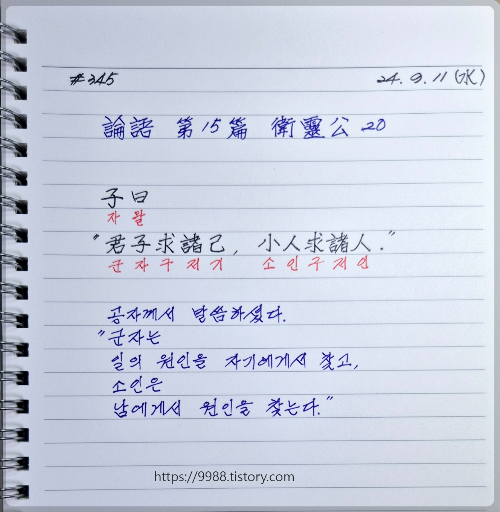 #345 24. 9. 11 (水)
論語 第15篇 衛靈公 20
子曰
자 왈
"君子求諸己, 小人求諸人."
군 자 구 저 기 소 인 구 저 인
공자께서 말씀하셨다.
"군자는
일의 원인을 자기에게서 찾고,
소인은
남에게서 원인을 찾는다."
https://9988.tistory.com